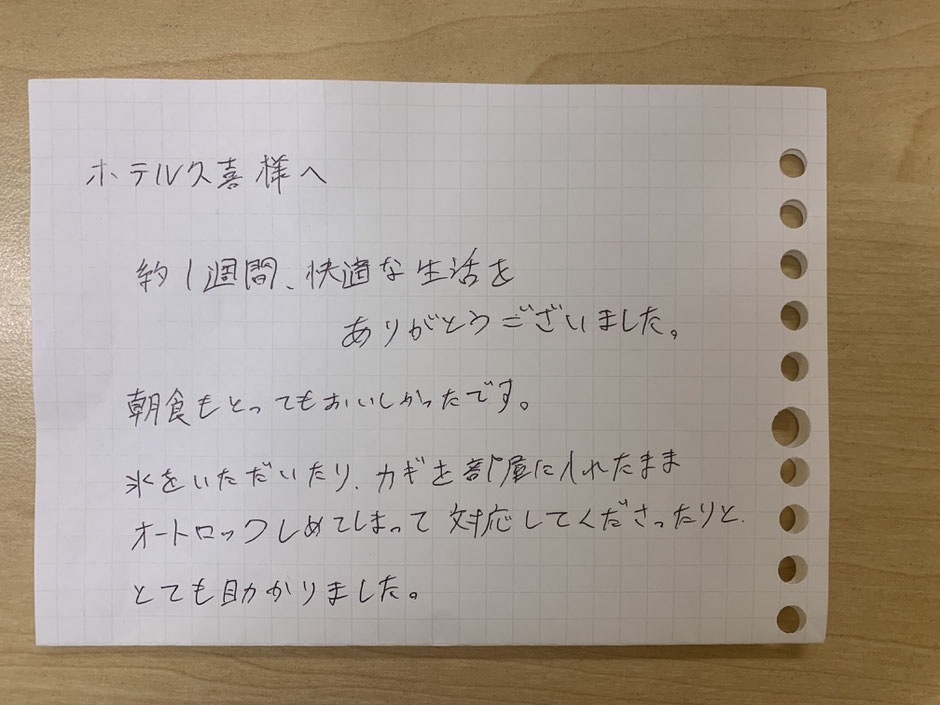 ホテル久喜様へ
約1週間、快適な生活を
ありがとうございました。
朝食もとってもおいしかったです。
氷をいただいたり、カギを部屋に入れたまま
オートロックしめてしまって対応してくださったりと、
とても助かりました。